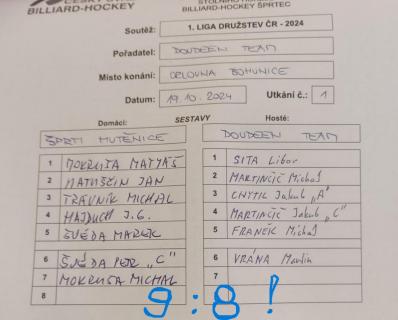 BILLIARD-HOCKEY
BILLIARD-HOCKEY ŠPRTEC
Soutěž: 1. LIGA DRUŽSTEV ČR - 2024
Pořadatel: DOUDEEN TEAM
Místo konání: ORLOVNA BOHUNICE
Datum: 19.10.2024 Utkání č.: 1
Domácí: SESTAVY Hosté:
ŠPRTI MUTĚNICE DOUDEEN TEAM
1 MOKRUŠA MATYÁŠ 1 SITA Libor
2 MATUŠČIN JAN 2 MARTINČIČ Michal
3 TRÁVNÍK MICHAL 3 CHYTIL Jakub „A"
4 HAJDUCH J.G. 4 MARTINČIČ Jakub „C"
5 ŠVÉDA MAREK 5 FRANĚK Michal
6 ŠVÉDA PETR „C" 6 VRÁNA Martin
7 MOKRUŠA MICHAL 7
8 8
9:8!